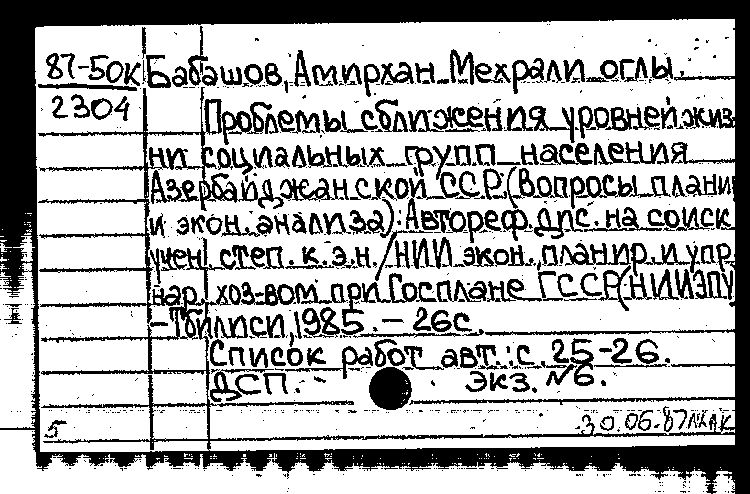 87-50К Бабашов, Амирхан Мехрали оглы.
2304 Проблемы сближения уровней жиз
ни социальных групп населения
Азербайджанской ССР. (Вопросы плани
и экон. анализа): Автореф. дис. на соиск
учен. степ. к. э. н. / НИИ экон., планир. и упр
нар. хоз-вом при Госплане ГССР (НИИЭПУ
- Тбилиси, 1985. - 26 с.
Список работ авт.: с. 25-26.
ДСП. - Экз. №6.
5 30.06.87